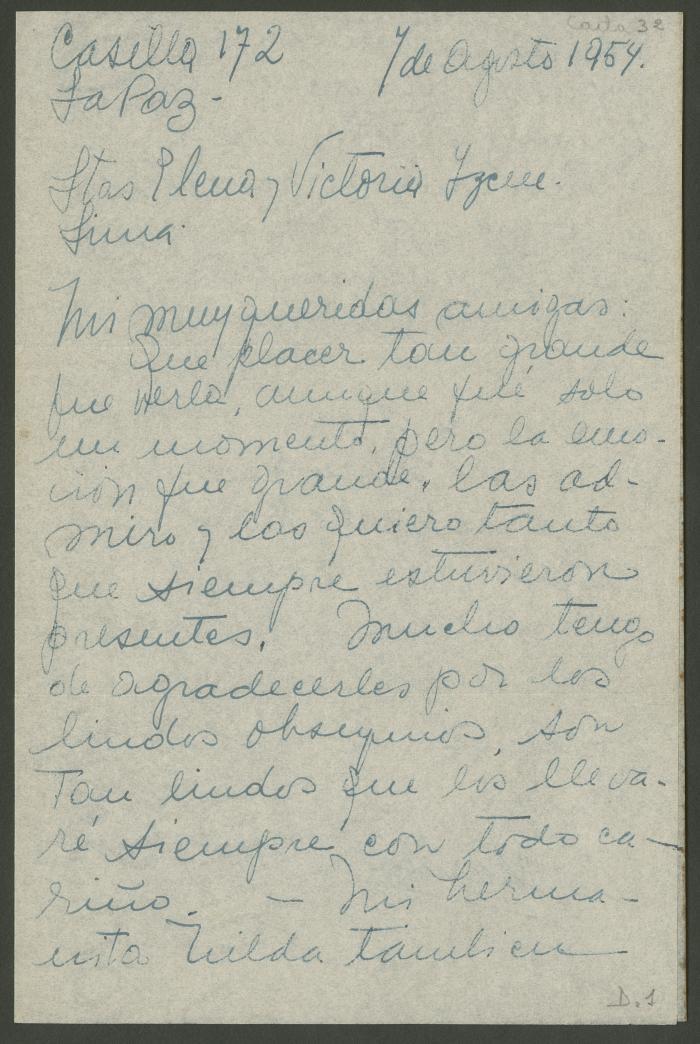 Carta 32
Casilla 172 7 de Agosto 1954.
La Paz -
Stas Elena y Victoria Izcue.
Lima.
Mis muy queridas amigas:
Que placer tan grande
fue verla, aunque fué solo
un momento, pero la emo-
ción fue grande, las ad-
miro y las quiero tanto
que siempre estuvieron
presentes. Mucho tengo
de agradecerles por los
lindos obsequios, son
tan lindos que los lleva-
ré siempre con todo ca-
riño. - Mi herma-
nita Nilda tambien
D.1